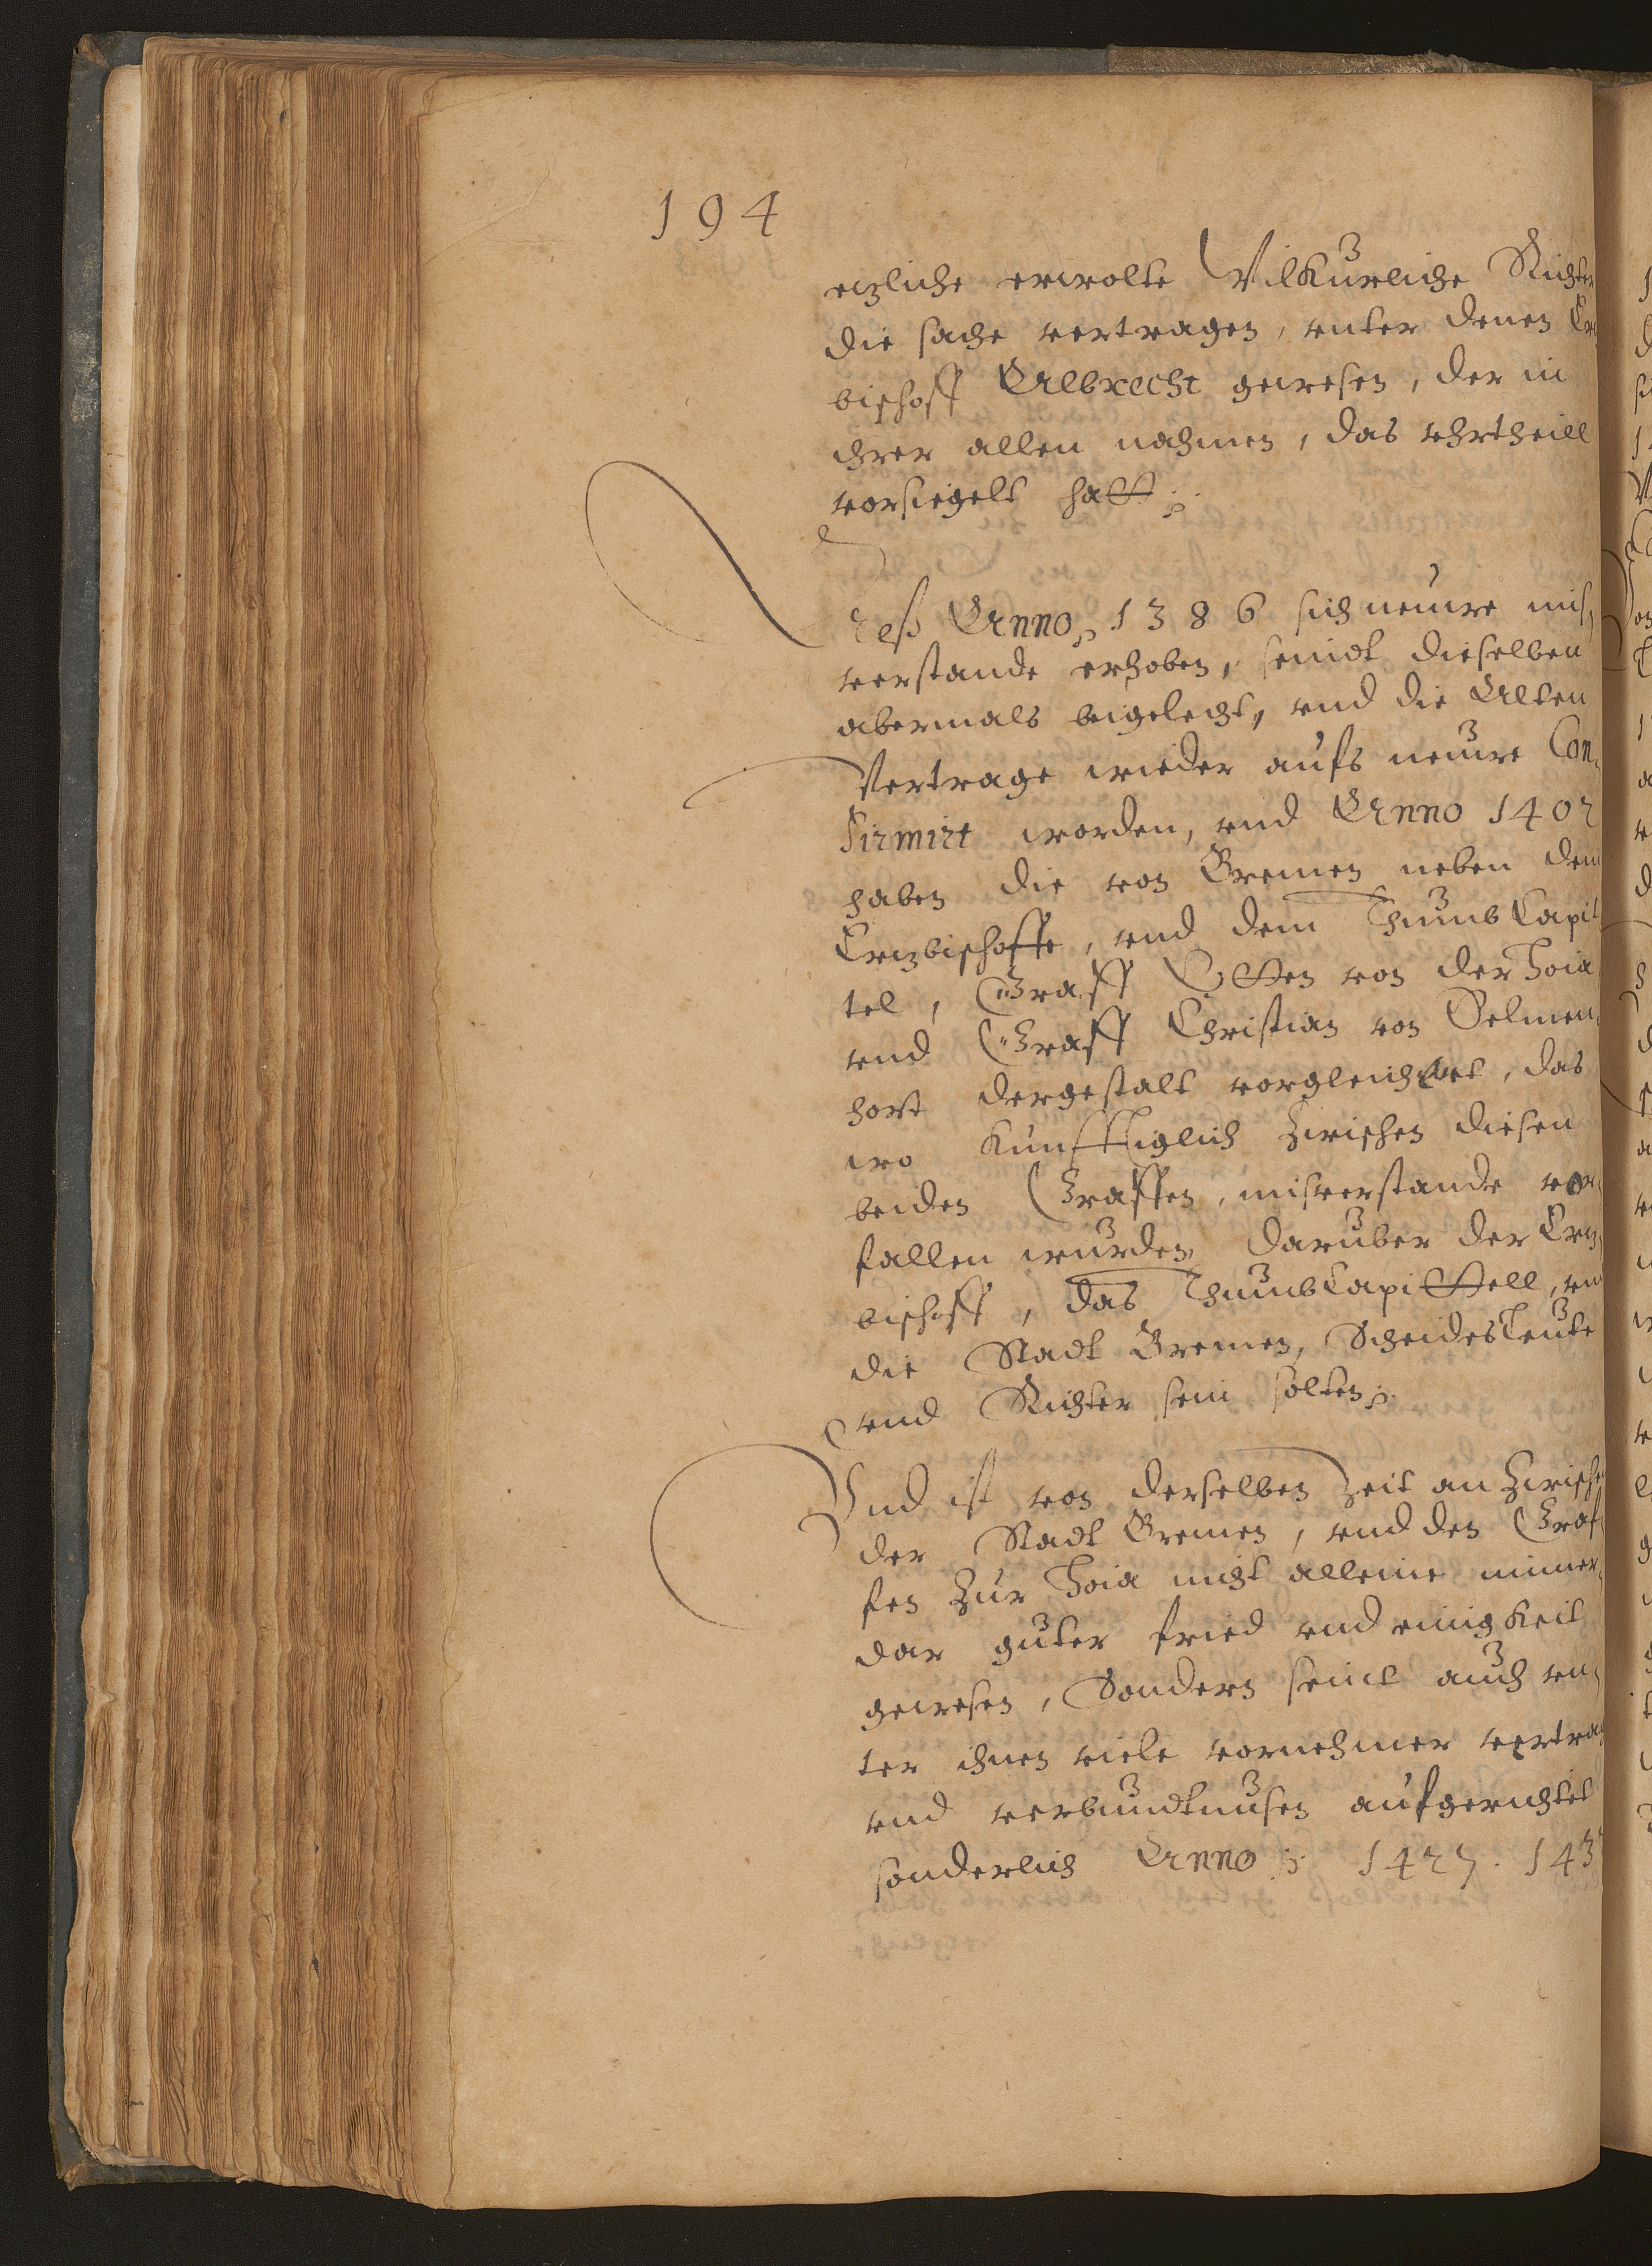 194
etzliche erwolte Vilkurliche Richter
die sache vertragen, vnter denen Er
bischoff Albrecht gewesen, der in
ihrer allen nahmen, das vhrtheill
vorsiegelt hatt
Alß Anno 1386 sich neuwe mis,
verstande erhoben, seindt dieselben
abermals beigelecht, vnd die Alten
Vertrage wieder aufs neuwe Con,
firmirt worden, vnd Anno 1402
haben die von Bremen neben dem
Ertzbischoffe, vnd dem Thumb Capit
tel, Graff Otten von der Hoia
vnd Graff Christian von Delmen,
horst dergestalt vorgleichet, das
wo kunfftiglich zwischen diesen
beiden Graffen, misverstande vor,
fallen wurden, daruber der Ertz,
bischoff, das Thumb Capittell, vn
die Stadt Bremen, Scheidesleute
vnd Richter sein solten
Vnd ist von derselben zeit an zwische
der Stadt Bremen, vnd den Graf
fen zur Hoia nicht alleine immer,
dar guter fried vnd einigkeit
gewesen, Sondern seint auch vn,
ter ihnen viele vornehmer vertra
vnd verbundtnusen aufgerichtet
sonderlich Anno 1427. 143